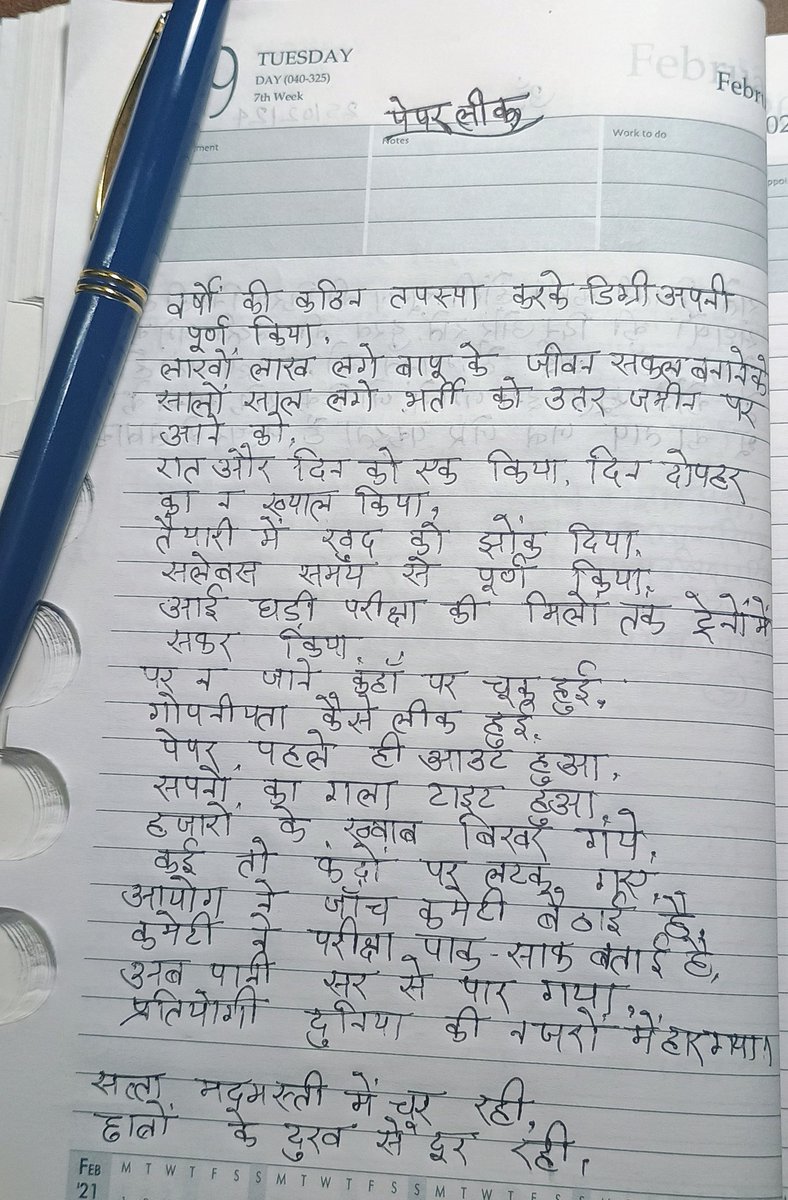 9 TUESDAY
DAY (040-325)
7th Week
Febru
पेपर लीक
ment Notes Work to do
वर्षों की कठिन तपस्या करके डिग्री अपनी
पूर्ण किया,
लाखों लाख लगे बापू के जीवन सफल बनाने को
सालों साल लगे भर्ती को उतर जमीन पर
आने को,
रात और दिन को एक किया, दिन दोपहर
का न ख्याल किया,
तैयारी में खुद को झोंक दिया,
सलेबस समय से पूर्ण किया,
आई घड़ी परीक्षा की मिलों तक ट्रेनों में
सफर किया,
पर न जाने कहाँ पर चूक हुई,
गोपनीयता कैसे लीक हुई,
पेपर पहले ही आउट हुआ,
सपनों का गला टाइट हुआ,
हजारों के ख्वाब बिखर गये,
कई तो फंदों पर लटक गए,
आयोग ने जाँच कमेटी बैठाई है,
कमेटी ने परीक्षा पाक-साफ बताई है,
अब पानी सर से पार गया,
प्रतियोगी दुनिया की नजरों में हार गया।
सत्ता मदमस्ती में चूर रही,
छात्रों के दुख से दूर रही,
FEB M T W T F S S M T W T F S S M T W T F S
'21